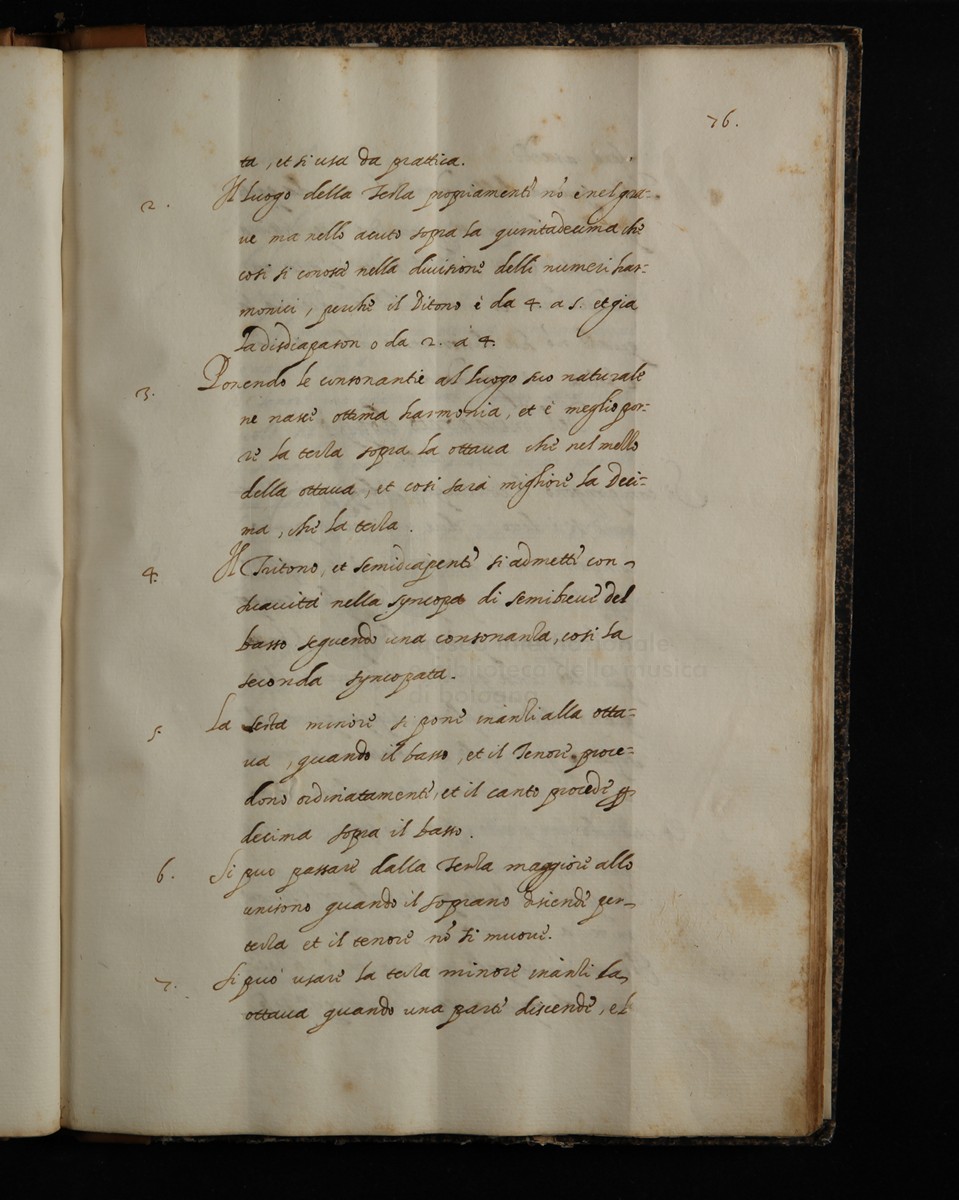 76.
ta, et si usa da prattica.
2. Il luogo della Terza propriamente nõ è nel gra-
ue ma nello acuto sopra la quintadecima che
cosi si conosce nella diuisione delli numeri har-
monici, perche il Ditono è da 4. a 5. et gia
la disdiapason o da 2. à 4.
3. Ponendo le consonantie al luogo suo naturale
ne nasce ottima harmonia, et è meglio por-
re la terza sopra la ottaua che nel mezzo
della ottaua, et cosi sarà migliore la Deci-
ma, che la terza.
4. Il Tritono, et semidiapente si admette con
suauità nella syncopa di semibreue del
basso seguendo una consonanza, cosi la
seconda syncopata.
5. La sesta minore si pone inanzi alla otta-
ua, quando il basso, et il Tenore proce-
dono ordinatamente, et il canto procede ꝑ
decima sopra il basso.
6. Si può passare dalla Terza maggiore allo
unisono quando il soprano disende per
terza et il tenore nõ si muoue.
7. Si può usare la terza minore inanzi la
ottaua quando una parte discende, et
museo internazionale
e biblioteca della musica
di bologna